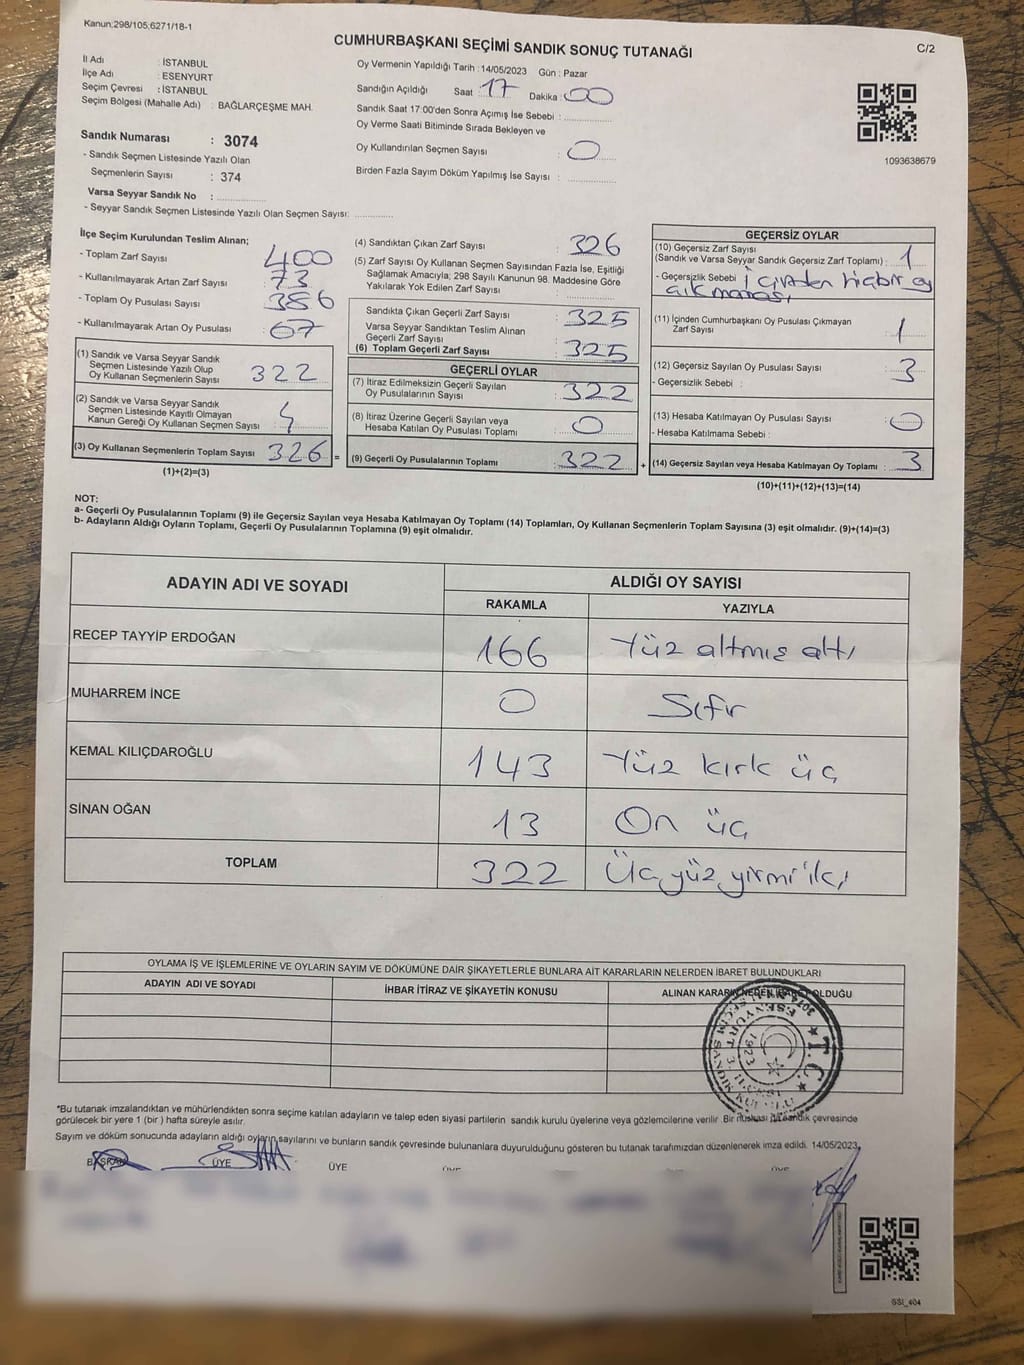 Kanun:298/105;6271/18-1
C/2
CUMHURBAŞKANI SEÇİMİ SANDIK SONUÇ TUTANAĞI
İl Adı : İSTANBUL
İlçe Adı : ESENYURT
Seçim Çevresi : İSTANBUL
Seçim Bölgesi (Mahalle Adı) : BAĞLARÇEŞME MAH.
Sandık Numarası : 3074
- Sandık Seçmen Listesinde Yazılı Olan
Seçmenlerin Sayısı : 374
Varsa Seyyar Sandık No :
- Seyyar Sandık Seçmen Listesinde Yazılı Olan Seçmen Sayısı:
Oy Vermenin Yapıldığı Tarih : 14/05/2023 Gün : Pazar
Sandığın Açıldığı Saat : 17 Dakika : 00
Sandık Saat 17:00'den Sonra Açımış İse Sebebi :
Oy Verme Saati Bitiminde Sırada Bekleyen ve
Oy Kullandırılan Seçmen Sayısı : 0
Birden Fazla Sayım Döküm Yapılmış İse Sayısı :
1093638679
İlçe Seçim Kurulundan Teslim Alınan;
- Toplam Zarf Sayısı : 400
- Kullanılmayarak Artan Zarf Sayısı : 73
- Toplam Oy Pusulası Sayısı : 386
- Kullanılmayarak Artan Oy Pusulası : 67
(1) Sandık ve Varsa Seyyar Sandık
Seçmen Listesinde Yazılı Olup
Oy Kullanan Seçmenlerin Sayısı : 322
(2) Sandık ve Varsa Seyyar Sandık
Seçmen Listesinde Kayıtlı Olmayan
Kanun Gereği Oy Kullanan Seçmen Sayısı : 4
(3) Oy Kullanan Seçmenlerin Toplam Sayısı : 326
(1)+(2)=(3)
(4) Sandıktan Çıkan Zarf Sayısı : 326
(5) Zarf Sayısı Oy Kullanan Seçmen Sayısından Fazla İse, Eşitliği
Sağlamak Amacıyla; 298 Sayılı Kanunun 98. Maddesine Göre
Yakılarak Yok Edilen Zarf Sayısı :
Sandıkta Çıkan Geçerli Zarf Sayısı : 325
Varsa Seyyar Sandıktan Teslim Alınan
Geçerli Zarf Sayısı :
(6) Toplam Geçerli Zarf Sayısı : 325
GEÇERLİ OYLAR
(7) İtiraz Edilmeksizin Geçerli Sayılan
Oy Pusulalarının Sayısı : 322
(8) İtiraz Üzerine Geçerli Sayılan veya
Hesaba Katılan Oy Pusulası Toplamı : 0
= (9) Geçerli Oy Pusulalarının Toplamı : 322 +
GEÇERSİZ OYLAR
(10) Geçersiz Zarf Sayısı
(Sandık ve Varsa Seyyar Sandık Geçersiz Zarf Toplamı) : 1
- Geçersizlik Sebebi : İçinden hiçbir oy
çıkmaması
(11) İçinden Cumhurbaşkanı Oy Pusulası Çıkmayan
Zarf Sayısı : 1
(12) Geçersiz Sayılan Oy Pusulası Sayısı : 3
- Geçersizlik Sebebi :
(13) Hesaba Katılmayan Oy Pusulası Sayısı : 0
- Hesaba Katılmama Sebebi :
(14) Geçersiz Sayılan veya Hesaba Katılmayan Oy Toplamı : 3
(10)+(11)+(12)+(13)=(14)
NOT:
a- Geçerli Oy Pusulalarının Toplamı (9) ile Geçersiz Sayılan veya Hesaba Katılmayan Oy Toplamı (14) Toplamları, Oy Kullanan Seçmenlerin Toplam Sayısına (3) eşit olmalıdır. (9)+(14)=(3)
b- Adayların Aldığı Oyların Toplamı, Geçerli Oy Pusulalarının Toplamına (9) eşit olmalıdır.
ADAYIN ADI VE SOYADI ALDIĞI OY SAYISI
RAKAMLA YAZIYLA
RECEP TAYYİP ERDOĞAN 166 Yüz altmış altı
MUHARREM İNCE 0 Sıfır
KEMAL KILIÇDAROĞLU 143 Yüz kırk üç
SİNAN OĞAN 13 On üç
TOPLAM 322 Üç yüz yirmi iki
OYLAMA İŞ VE İŞLEMLERİNE VE OYLARIN SAYIM VE DÖKÜMÜNE DAİR ŞİKAYETLERLE BUNLARA AİT KARARLARIN NELERDEN İBARET BULUNDUKLARI
ADAYIN ADI VE SOYADI İHBAR İTİRAZ VE ŞİKAYETİN KONUSU ALINAN KARARIN NEDEN İBARET OLDUĞU
T.C.
1923
*Bu tutanak imzalandıktan ve mühürlendikten sonra seçime katılan adayların ve talep eden siyasi partilerin sandık kurulu üyelerine veya gözlemcilerine verilir. Bir nüshası da sandık çevresinde
görülecek bir yere 1 (bir) hafta süreyle asılır.
Sayım ve döküm sonucunda adayların aldığı oyların sayılarını ve bunların sandık çevresinde bulunanlara duyurulduğunu gösteren bu tutanak tarafımızdan düzenlenerek imza edildi. 14/05/2023
BAŞKAN ÜYE ÜYE
SSI_404